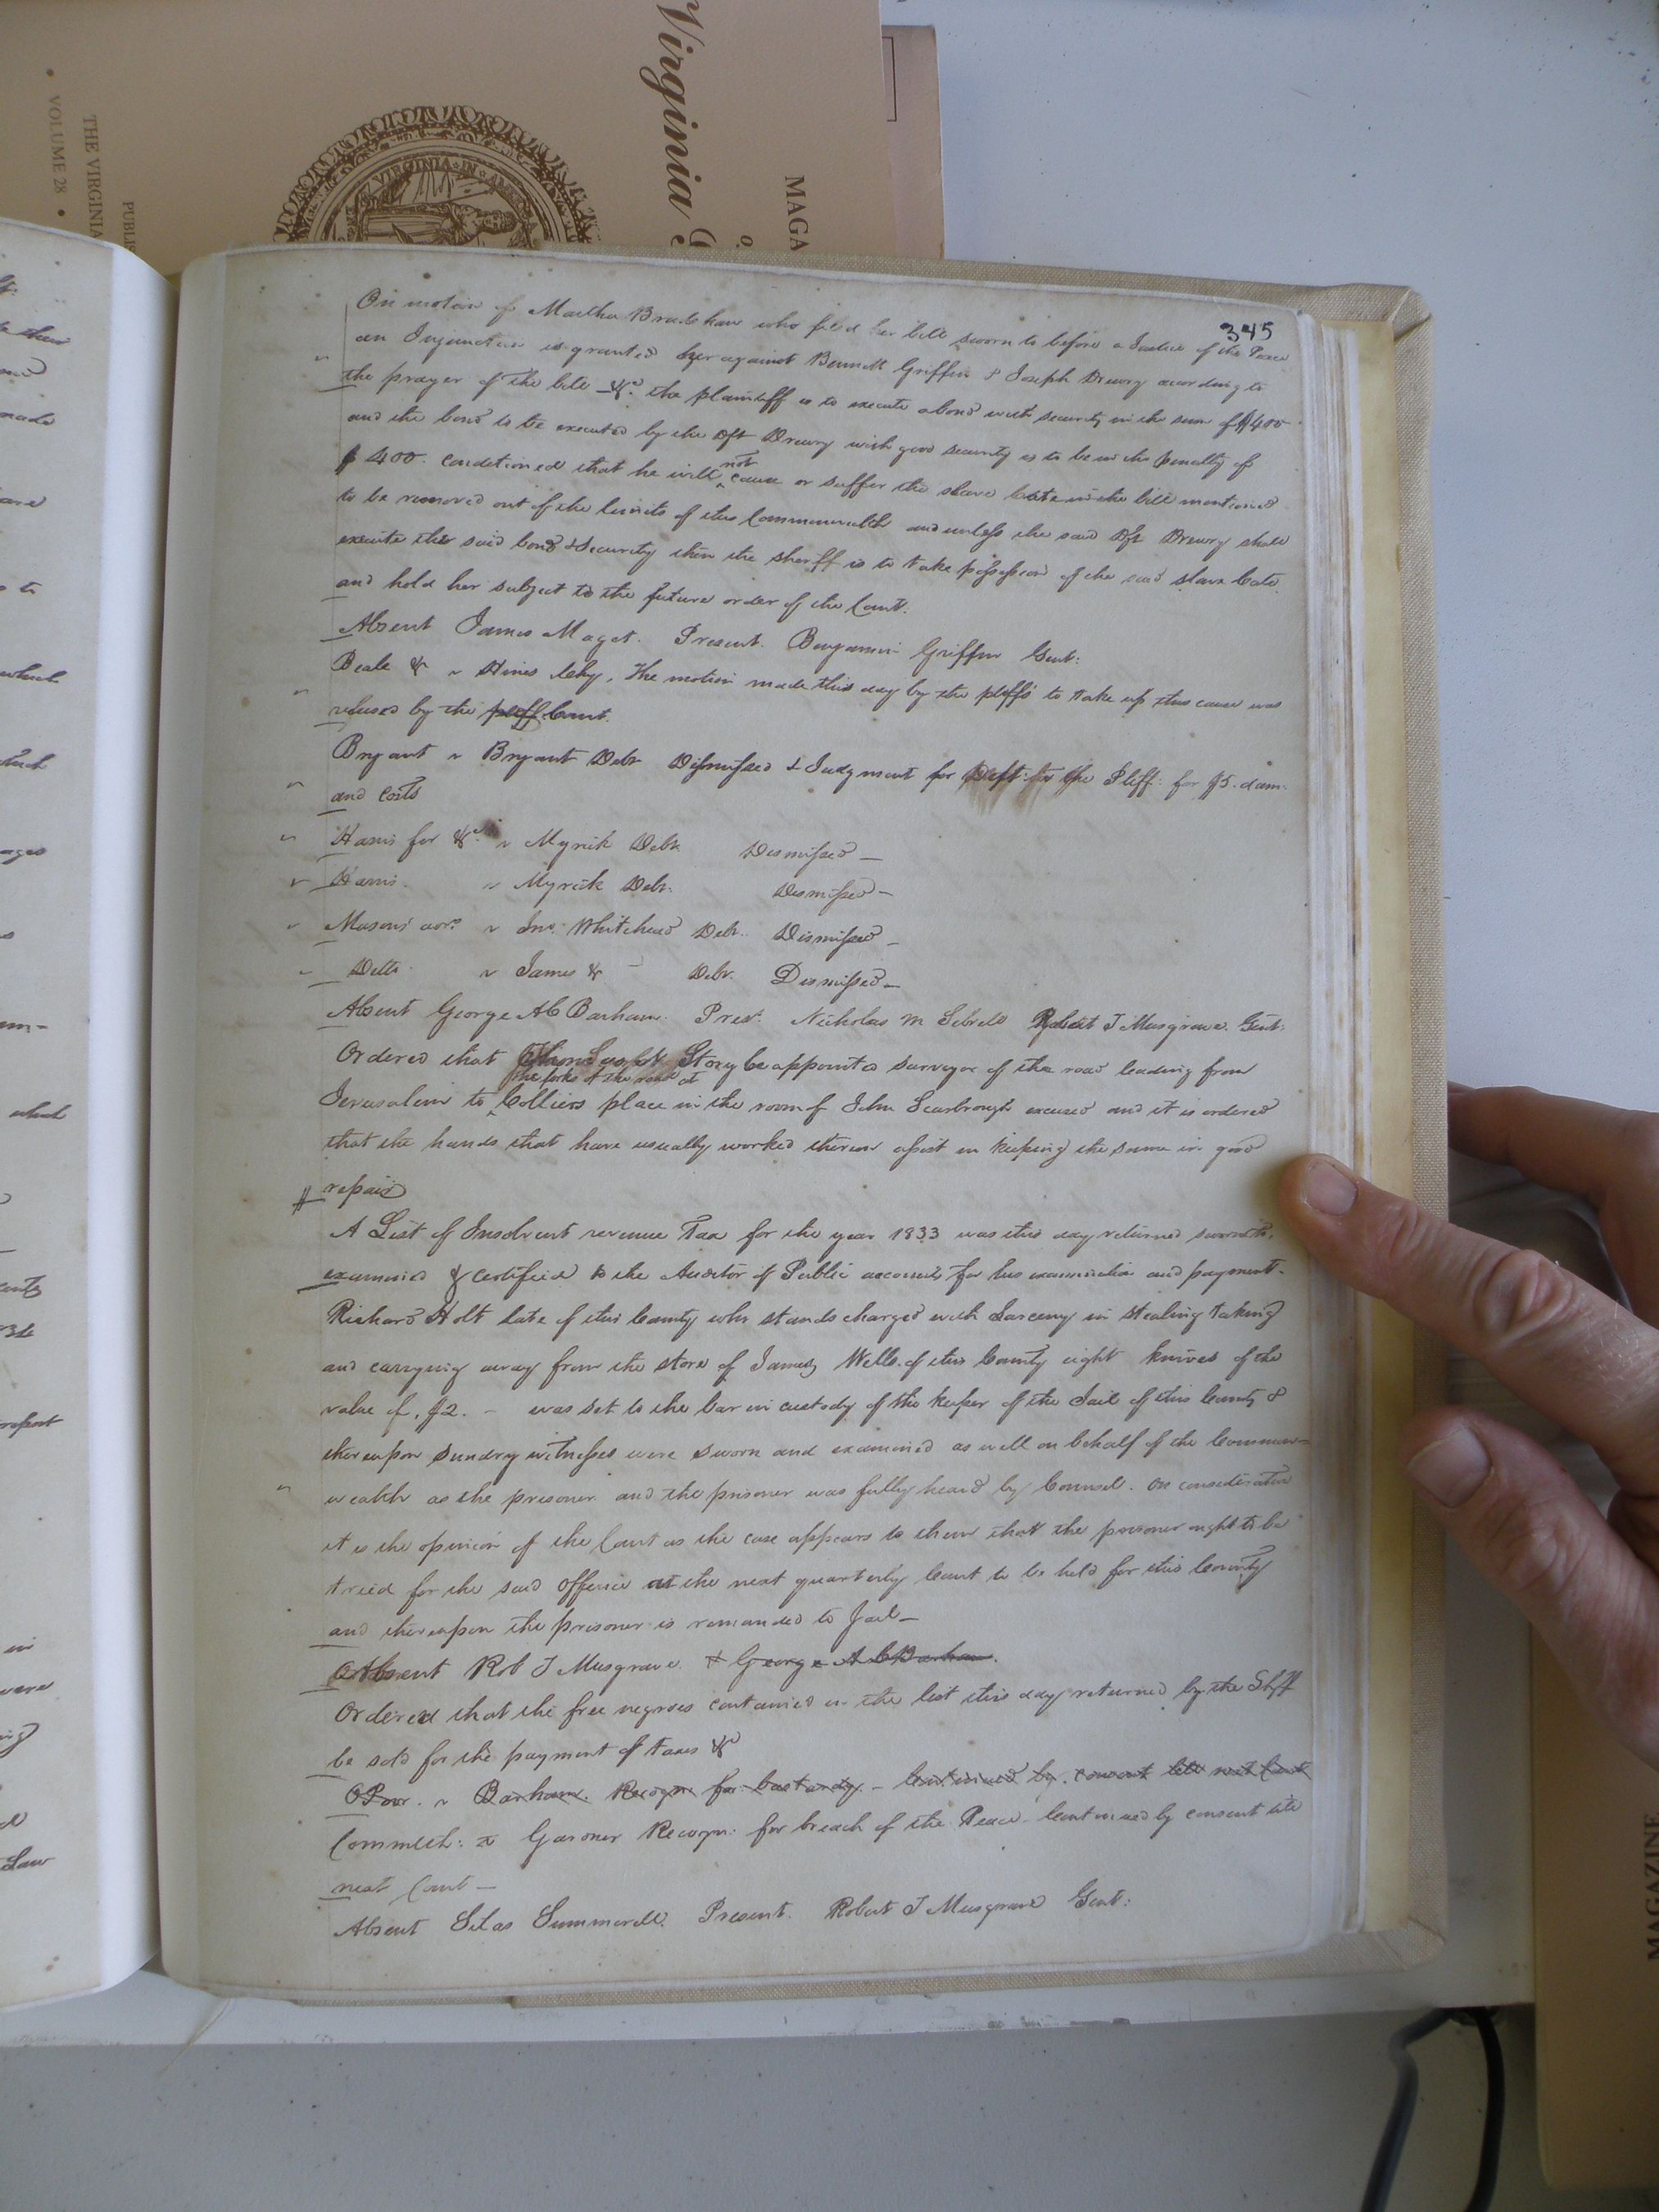 Virginia
MAGA
THE VIRGINIA
VOLUME 28
VIRGINIA IN AMERICA
MAGAZINE
345
On motion of Martha Bradshaw who filed her bill sworn to before a Justice of the Peace
an Injunction is granted her against Bennett Griffin & Joseph Drewry according to
the prayer of the bill &c. the plaintiff is to execute a bond with security in the sum of $400
and the bond to be executed by the Dft Drewry with good security is to be in the penalty of
$400. conditioned that he will not cause or suffer the slave Cate in the bill mentioned
to be removed out of the limits of this Commonwealth and unless the said Dft Drewry shall
execute the said bond & Security then the sheriff is to take possession of the said slave Cate
and hold her subject to the future order of the Court.
Absent James Maget. Present. Benjamin Griffin Gent:
Beale & v Hines Chy, The motion made this day by the plffs to take up this cause was
refused by the plff Court.
Bryant v Bryant Debt Dismissed & Judgment for Deft: for the Pleff: for $5. dam
and costs
Harris for &c. v Myrick Debt Dismissed —
Harris. v Myrick Debt. Dismissed —
Masons v Jno. Whitehead Debt. Dismissed —
Ditto v James & Debt. Dismissed —
Absent George A C Barham. Prest. Nicholas M Sebrell Robert T Musgrave. Gent:
Ordered that Story be appointed surveyor of the road leading from
the forks of the road at
Jerusalem to Colliers place in the room of John Scarbrough excused and it is ordered
that the hands that have usually worked thereon assist in keeping the same in good
repair
A List of Insolvent revenue Tax for the year 1833 was this day returned sworn to,
examined & certified to the Auditor of Public accounts for his examination and payment.
Richard Holt late of this County who stands charged with Larceny in stealing taking
and carrying away from the store of James Wells of this County eight knives of the
value of $2. — was set to the bar in custody of the keeper of the Jail of this County &
thereupon sundry witnesses were sworn and examined as well on behalf of the Common-
wealth as the prisoner and the prisoner was fully heard by Counsel. on consideration
it is the opinion of the Court as the case appears to them that the prisoner ought to be
tried for the said offence at the next quarterly Court to be held for this County
and thereupon the prisoner is remanded to Jail —
Absent Rob T Musgrave & George A C Barham.
Ordered that the free negroes contained in the list this day returned by the Shff
be sold for the payment of taxes &c
O Poor. v Barham. Recogn for bastardy — Continued by consent till next Court
Commlth: v Gardner Recogn: for breach of the Peace. Continued by consent till
next Court —
Absent Silas Summerell. Present. Robert T Musgrave Gent: